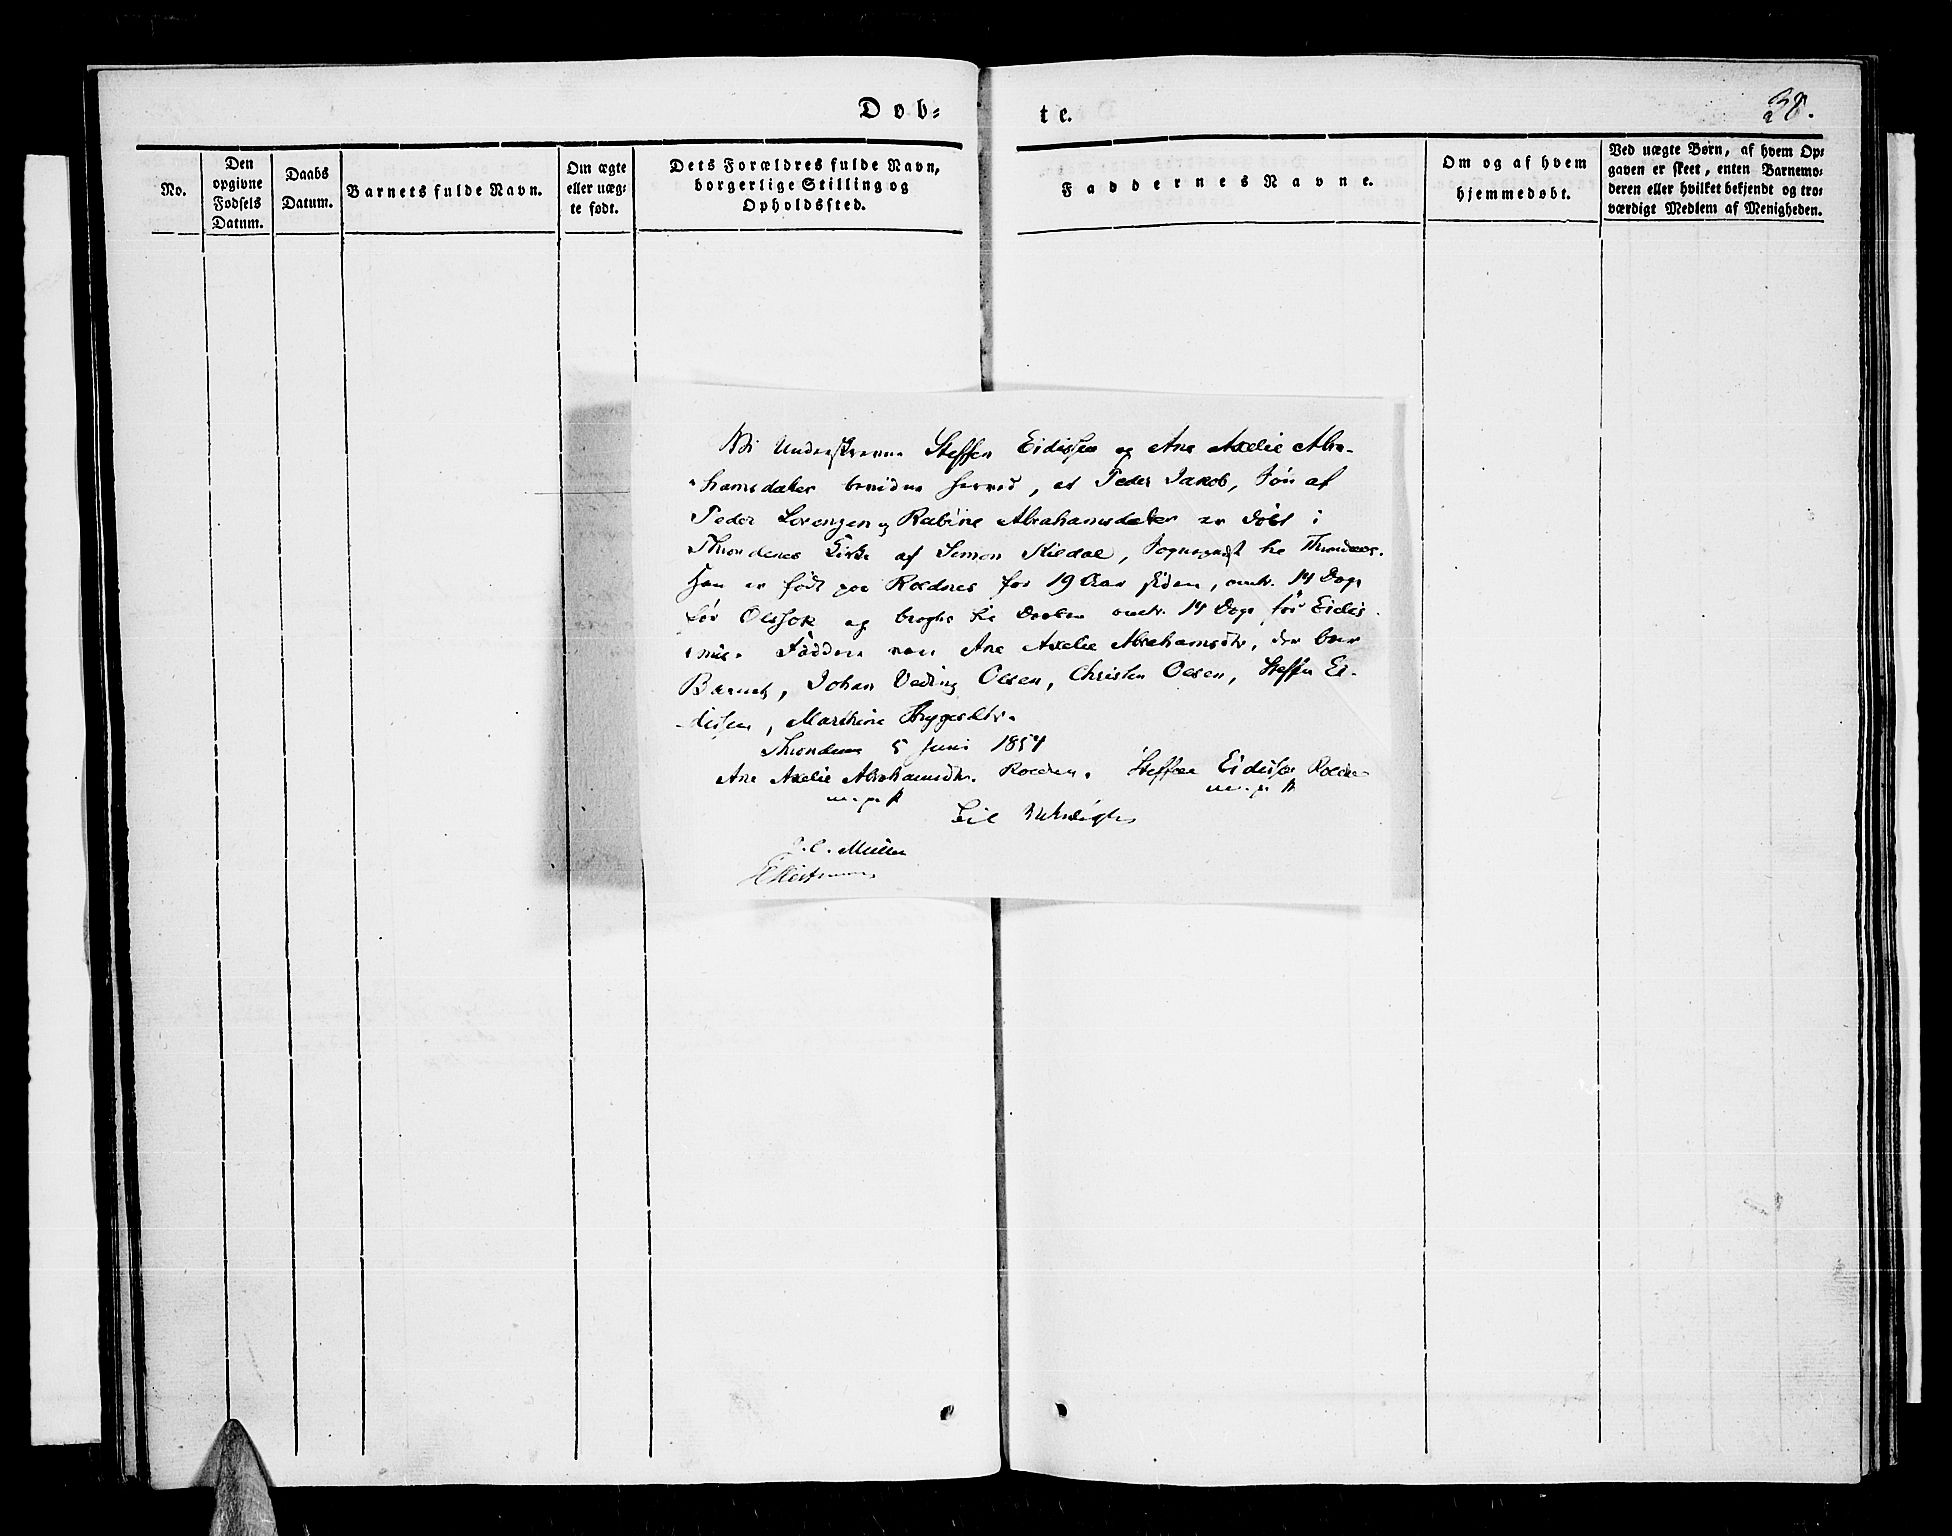 Døb-
te.
38.
No.
Den
opgivne
Fødsels
Datum.
Daabs
Datum.
Barnets fulde Navn.
Om ægte
eller uæg-
te født.
Dets Forældres fulde Navn,
borgerlige Stilling og
Opholdssted.
Faddernes Navne.
Om og af hvem
hjemmedøbt.
Ved uægte Børn, af hvem Op-
gaven er skeet, enten Barnemo-
deren eller hvilket bekjendt og tro-
værdigt Medlem af Menigheden.
Vi Underskrevne Steffen Eidissen og Ane Axelie Abra-
hamsdatter bevidne herved, at Peder Jakob, Søn af
Peder Lorenzen og Rabine Abrahamsdatter er døbt i
Throndenes Kirke af Simon Kildal, Sognepræst til Throndenes.
Han er født paa Roldnes for 19 Aar siden, omtr. 14 Dage
før Olssok og bragtes til Daaben omtr. 14 Dage før Eidis
Faddere vare Ane Axelie Abrahamsdtr. der bar
Barnet, Johan Olsen, Christen Olsen, Steffen Ei-
dissen, Marthine Thygesdtr.
Throndenes 5 Juni 1854
Ane Axelie Abrahamsdtr. Roldnes. Steffen Eidissen Roldnes
m. p. P. m. p. P.
Til Vitterlighed
J. C. Müller